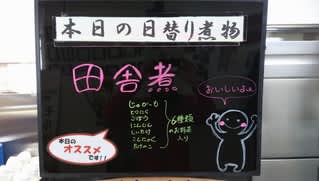 本日の日替り煮物
田舎煮
じゃがいも
とりにく
ごぼう
にんじん
しいたけ
こんにゃく
たけのこ
6種類
のお野菜
入り
おいしいよ
本日の
オススメ
です!!